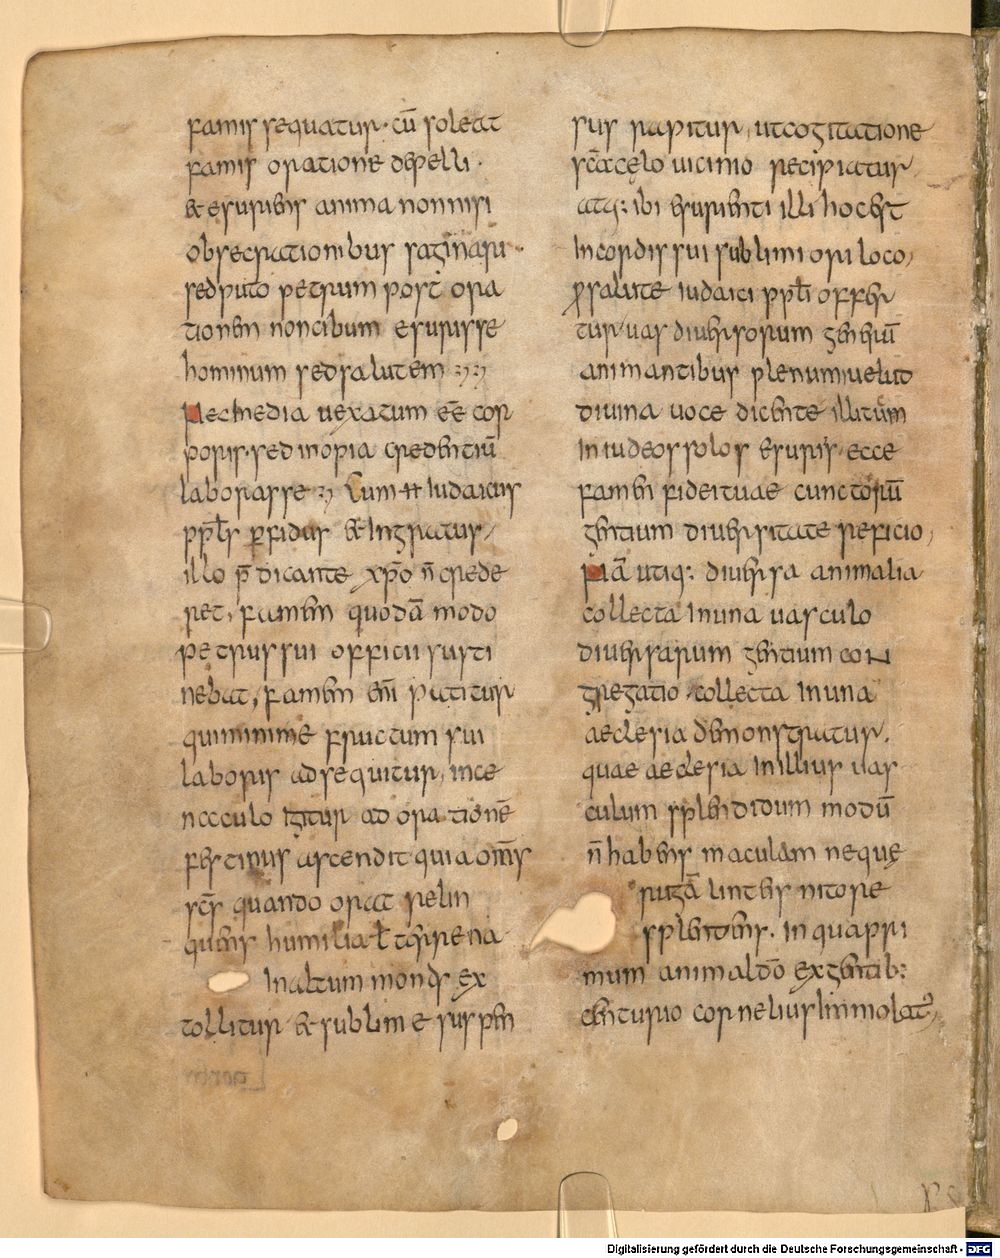 famis sequatur· cū soleat
famis oratione depelli·
& esuriens anima nonnisi
obsecrationibus saginari·
sed puto petrum post ora
tionem non cibum esurisse
hominum sed salutem
Nec media vexatum eē cor
poris· sed inopia credentiū
laborasse Cum Iudaicus
ppls perfidus & Ingratus,
illo p̄dicante xp̄o n̄ crede
ret, famem quodā modo
petrus sui officii susti
nebat, famem enī patitur
qui minime fructum sui
laboris adsequitur, in ce
naculo Igitur ad orationē
festinus ascendit quia om̄s
sc̄s quando orat relin
quens humilia & terrena
In altum mondi ex
tollitur & sublime suspen
sus rapitur, ut cogitatione
sc̄a cęlo vicinio recipiatur,
atq: ibi esurienti illi hoc est
In cordis sui sublimiori loco,
ꝓ salute Iudaici ppli offer
tur vas diversorum gentiū
animantibus plenum velut
divina voce dicente illi tum
In iudeos solos esuris· ecce
famem fidei tuae cunctorū
gentium diversitate reficio,
Nā utiq: diversa animalia
collecta In una vasculo
diversarum gentium con
gregatio collecta In una
aeclesia demonstratur,
quae aeclesia In illius vas
culum splendidum modū
n̄ habens maculam neque
rugā lintheis nitore
splendens· In qua pri
mum animal dō ex gentib:
centurio cornelius Immolat᷒,